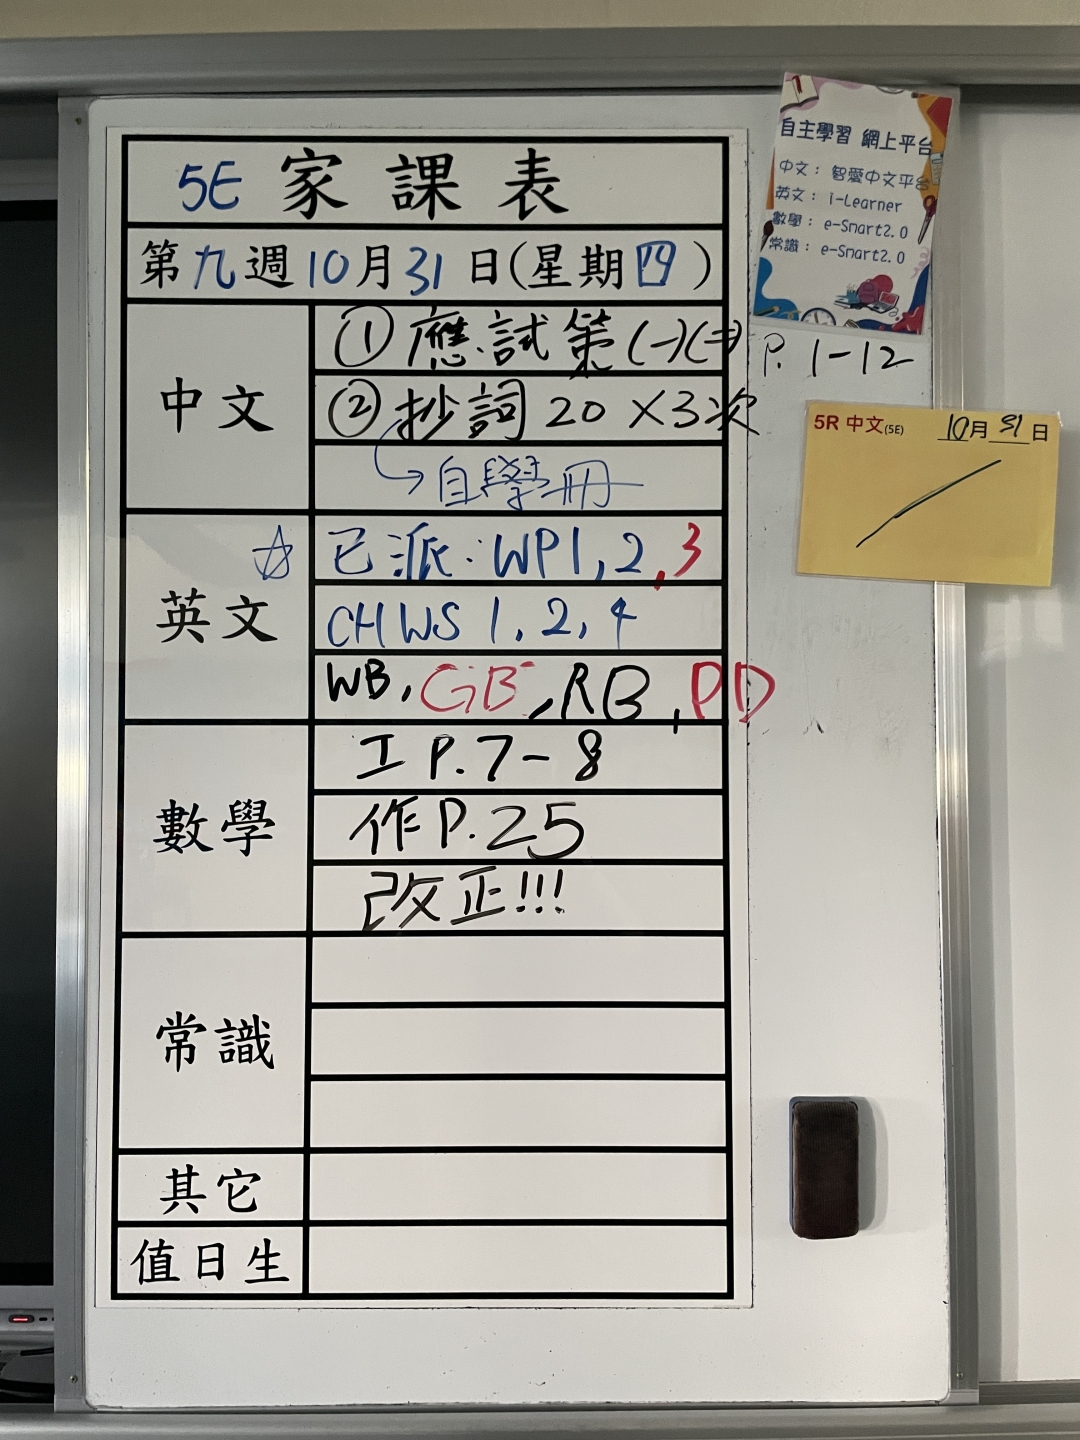 5E 家課表
第九週10月31日(星期四)
中文
①應試策(一)(二) P. 1-12
②抄詞20×3次
自學冊
英文
☆ 已派:WP1,2,3
CHWS 1,2,4
WB,GB,RB,PD
數學
工 P.7-8
作P.25
改正!!!
常識
其它
值日生
自主學習 網上平台
中文: 智愛中文平台
英文: i-Learner
數學: e-Smart2.0
常識: e-Smart2.0
5R 中文(5E) 10月31日